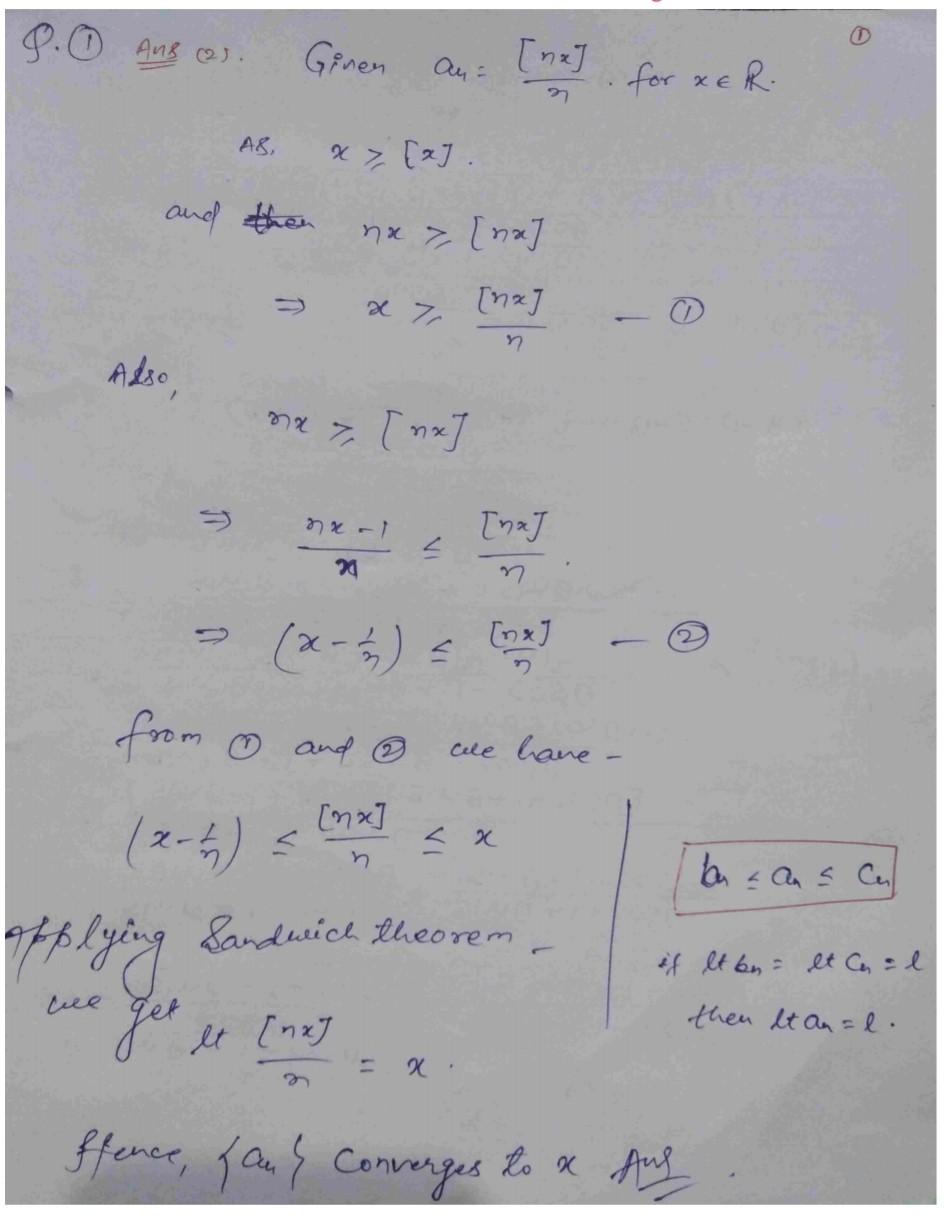 Q.① Ans (2). Given an = [nx]/n . for x ∈ R.
①
As, x ≥ [x].
and then nx ≥ [nx]
⇒ x ≥ [nx]/n — ①
Also,
nx ≥ [nx]
⇒ (nx-1)/n ≤ [nx]/n .
⇒ (x - 1/n) ≤ [nx]/n — ②
from ① and ② we have -
(x - 1/n) ≤ [nx]/n ≤ x
Applying Sandwich theorem -
we get
lt [nx]/n = x .
bn ≤ an ≤ cn
if lt bn = lt cn = l
then lt an = l .
Hence, {an} Converges to x Ans .